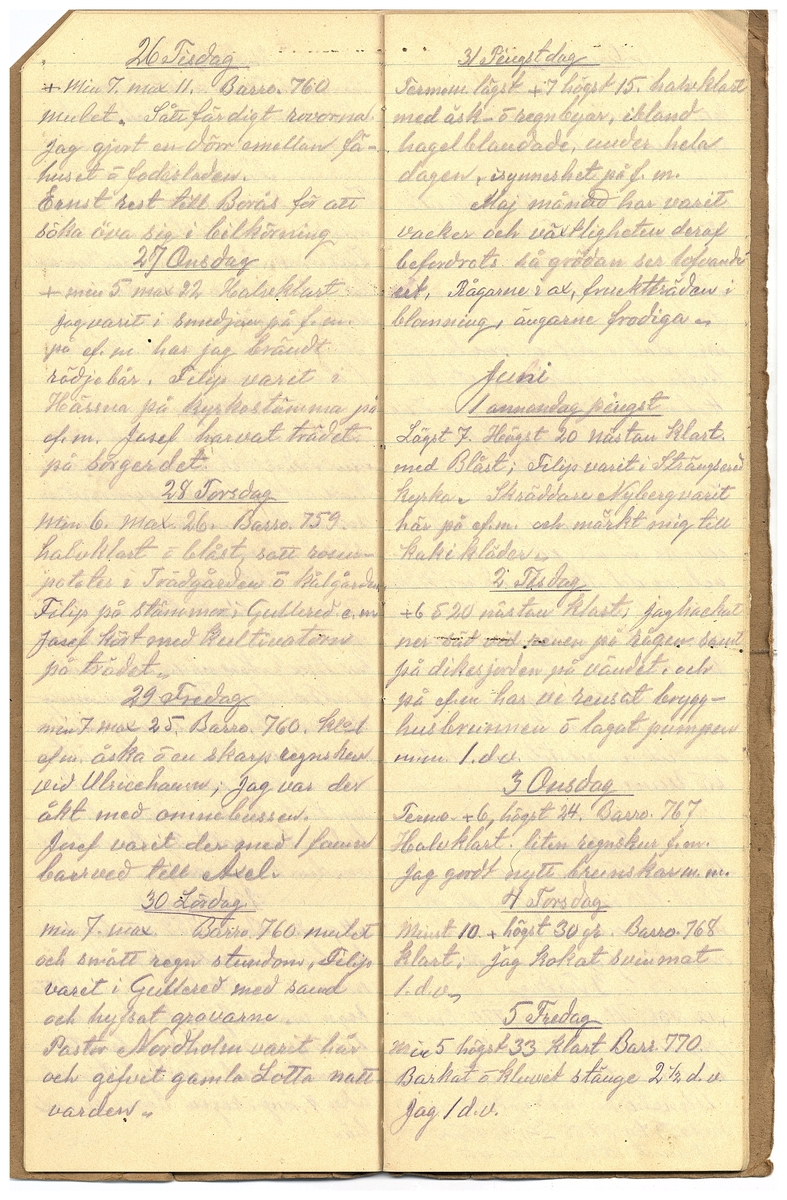 26 Tisdag
+ Min 7. max 11. Barro. 760
mulet. Sått färdigt rovorna.
jag gjort en dörr emellan få-
huset ö Loderladen.
Ernst rest till Borås för att
söka öva sig i bilkörning
27 Onsdag
+ min 5 max 22 Halvklart
Jag varit i smedjan på f.m.
på ef.m. har jag brändt
rödjebår. Filip varit i
Hössna på Kyrkostämma på
ef.m. Josef harvat trädet
på börgerdet.
28 Torsdag
Min 6. max 26. Barro. 759.
halvklart ö blåst, satt rosen-
potates i Trädgården ö kålgården
Filip på stämmor i Gullered e.m
Josef kört med kultivatorn
på trädet „
29 Fredag
min 7 max 25. Barro. 760. klart
efm. åska ö en skarp regnskur
vid Ulricehamn; Jag var der
åkt med omnebussen.
Josef varit der med 1 famn
barrved till Axel.
30 Lördag
min 7. max Barro. 760 mulet
och smått regn stundom, Filip
varit i Gullered med sand
och hyfsat gravarne.
Pastor Nordholm varit här
och gifvit gamla Lotta natt
varden „
31 Pingstdag
Termom. lägst +7 högst 15. halvklart
med åsk- ö regnbyar, ibland
hagelblandade, under hela
dagen, isynnerhet på f.m.
Maj månad har varit
vacker och växtligheten deraf
befordrats så grödan ser lofvande
ut, Rågarne i ax, fruktträden i
blomning, ängarne frodiga „
Juni
1 annandag pingst
Lägst 7. Högst 20 nästan klart.
med Blåst; Filip varit i Strängsered
kyrka. Skräddare Nyberg varit
här på ef.m. och märkt mig till
kaki kläder.
2 Tisdag
+6 ö 20 nästan klart; jag hackat
ner vid renen på rågen samt
på dikesjorden på vändet. och
på ef.m har vi rensat brygg-
husbrunnen ö lagat pumpen
m.m. 1. d.v.
3 Onsdag
Termo. +6, högst 24. Barro. 767
Halvklart. liten regnskur f.m.
Jag gordt nytt brunskar m. m.
4 Torsdag
Minst 10. + högst 30 gr. Barro. 768
klart; jag kokat svinmat
1. d.v„
5 Fredag
Min 5 högst 33 klart Barr. 770.
Barkat ö kluvit stänge 2 ½ d.v.
Jag 1 d.v.